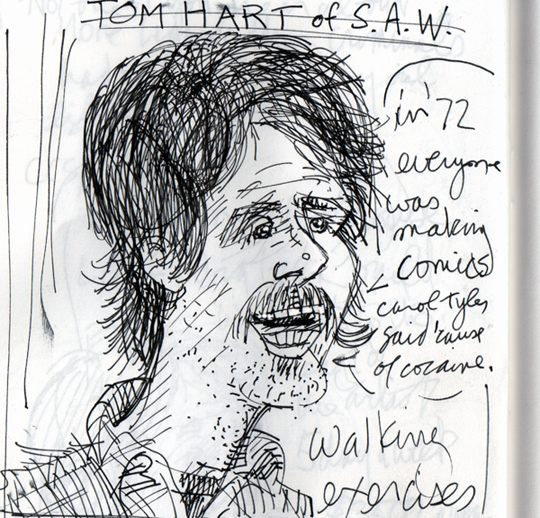 TOM HART of S.A.W.
in '72
everyone
was
making
comics
carol tyler
said 'cause
of cocaine.
walking
exercises